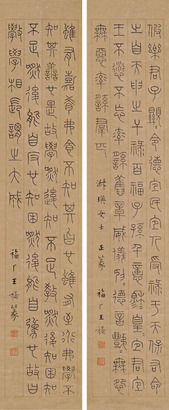 假樂君子顯顯令德宜民宜人受祿于天保右命
之自天申之干祿百福子孫千億穆穆皇皇宜君宜
王不愆不忘率繇舊章威儀抑抑德音秩秩
無怨無惡率繇羣匹
女士 正篆 福厂王禔
雖有嘉肴弗食不知其旨也雖有至道弗學不
知其善也是故學然後知不足教然後知困知
不足然後能自反也知困然後能自強也故曰
教學相長謂之大成
福厂王禔篆